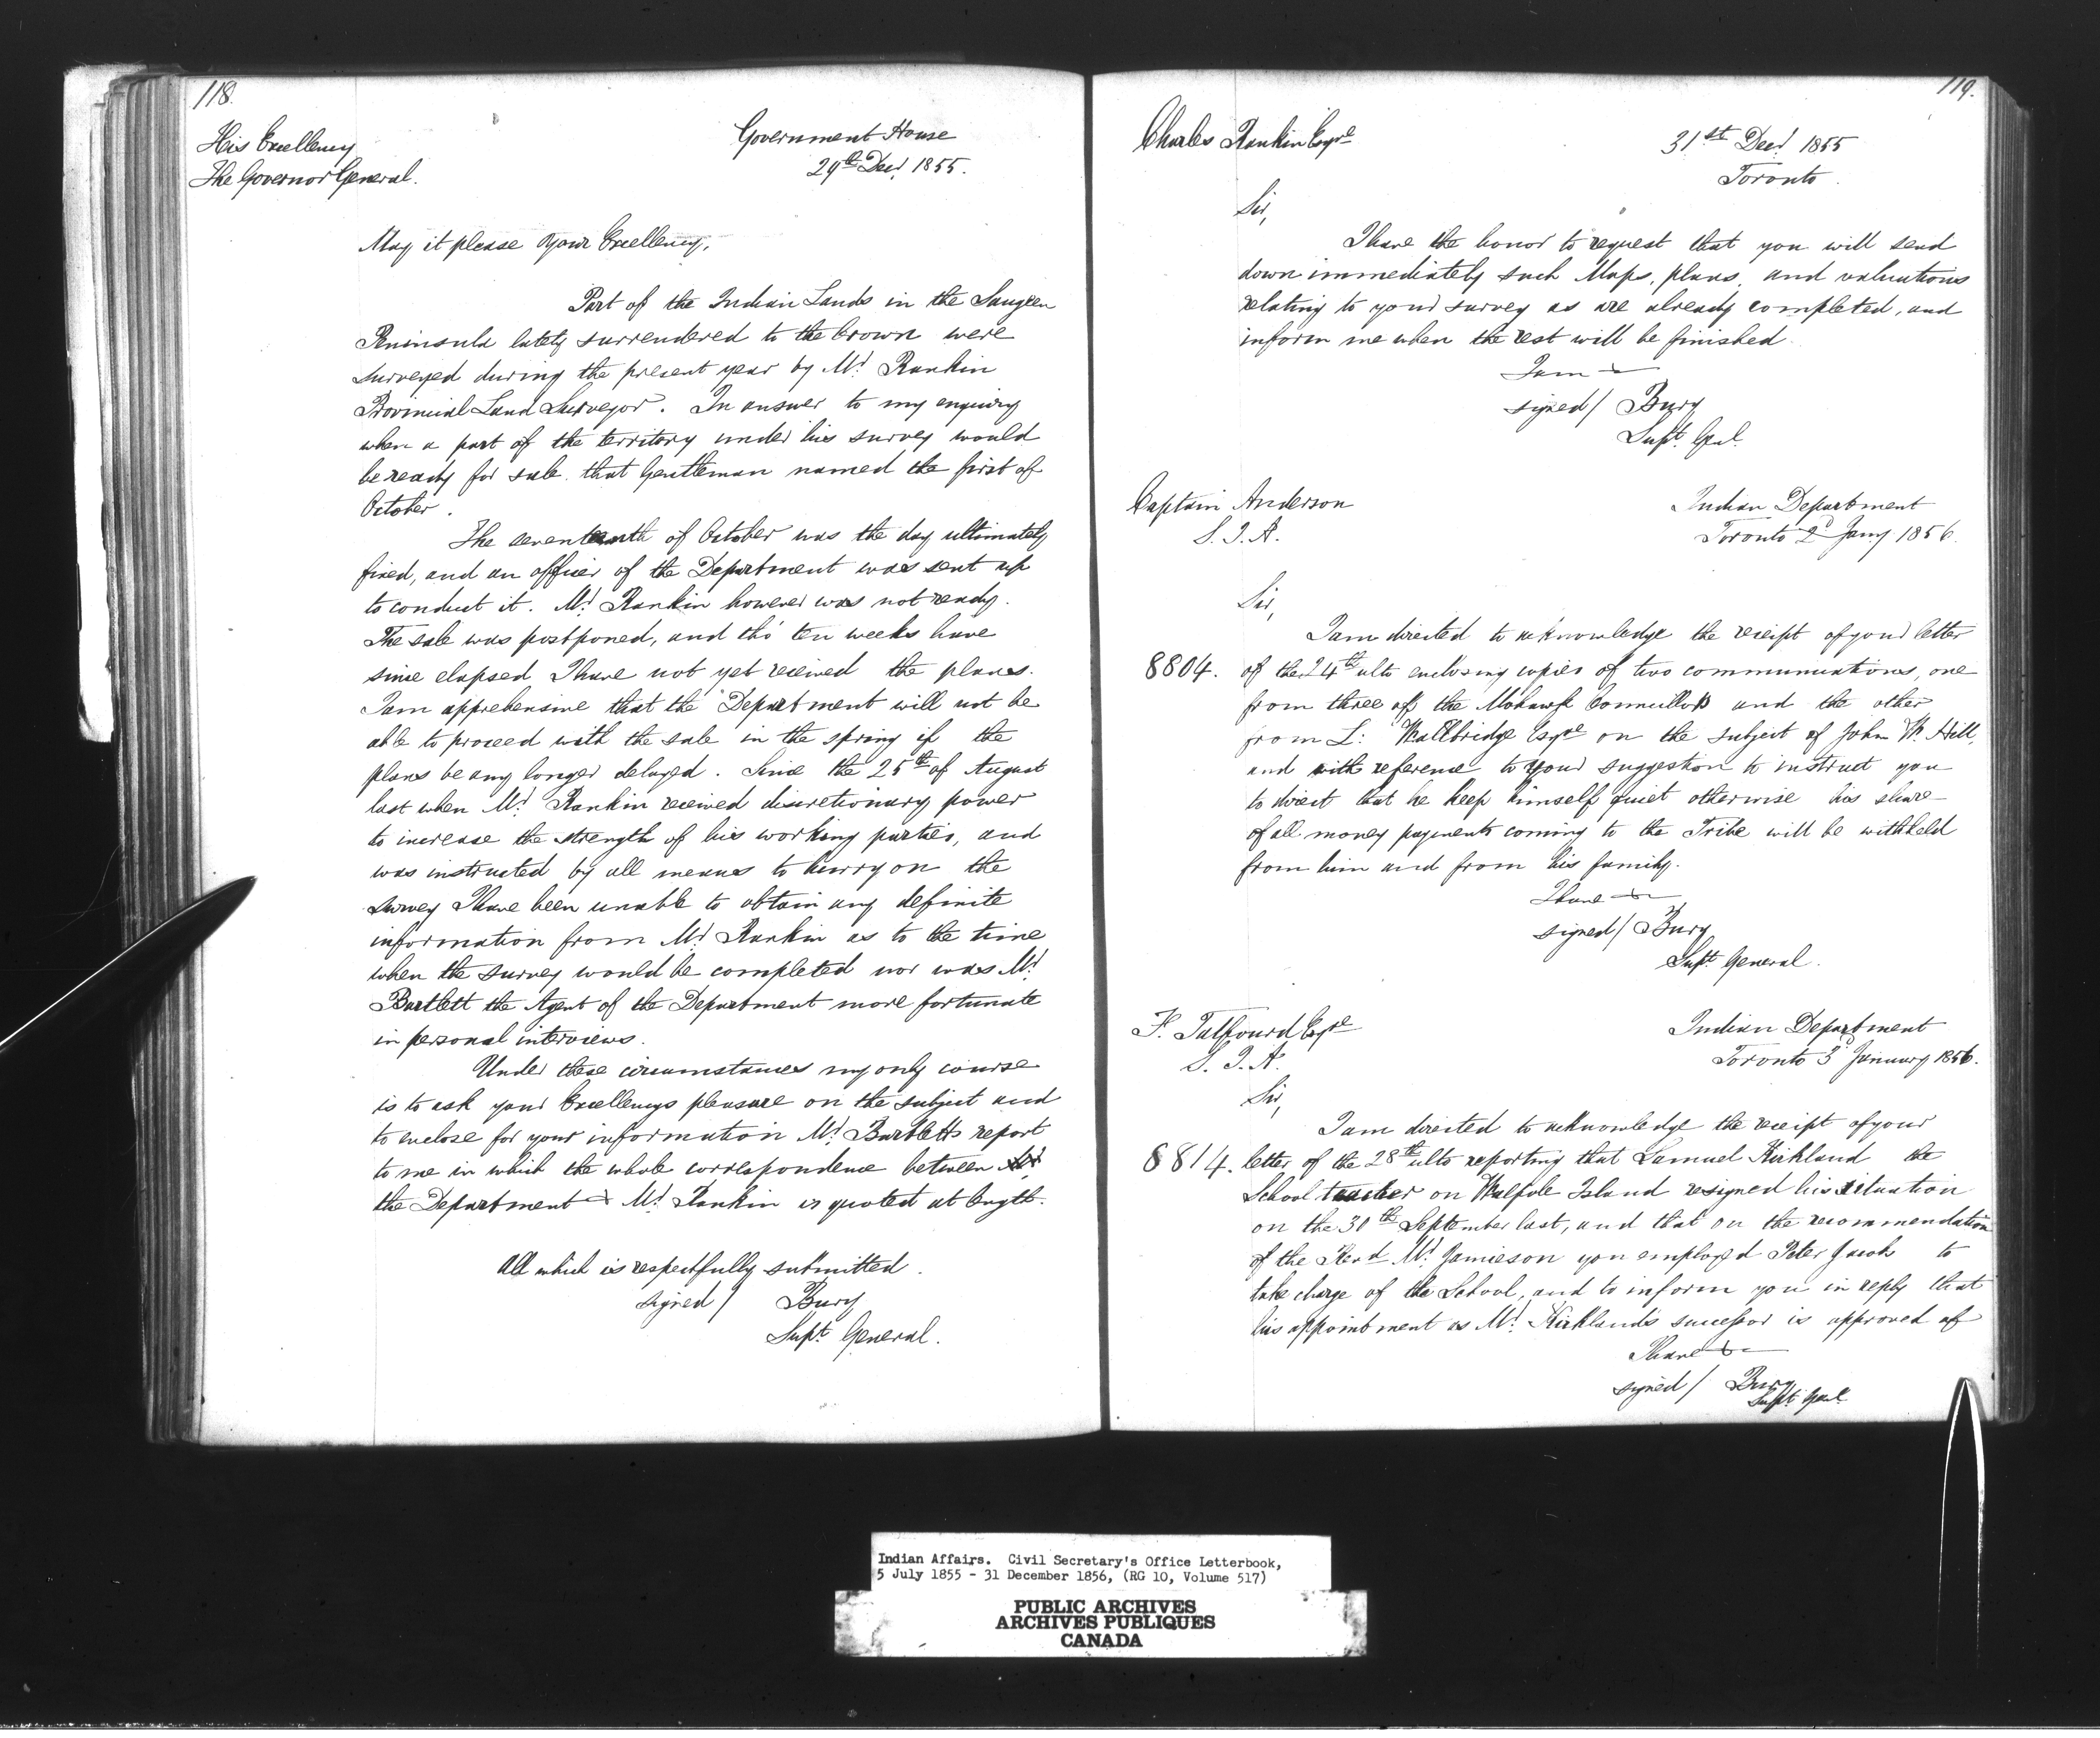 118.
His Excellency
The Governor General.
Government House
29th Decr 1855.
May it please Your Excellency,
Part of the Indian Lands in the Saugeen
Peninsula lately surrendered to the Crown were
surveyed during the present year by Mr Rankin
Provincial Land Surveyor. In answer to my enquiry
when a part of the territory under his survey would
be ready for sale that Gentleman named the first of
October.
The seventeenth of October was the day ultimately
fixed, and an officer of the Department was sent up
to conduct it. Mr Rankin however was not ready.
The sale was postponed, and tho' ten weeks have
since elapsed I have not yet received the plans.
I am apprehensive that the Department will not be
able to proceed with the sale in the spring if the
plans be any longer delayed. Since the 25th of August
last when Mr Rankin received discretionary power
to increase the strength of his working parties, and
was instructed by all means to hurry on the
survey I have been unable to obtain any definite
information from Mr Rankin as to the time
when the survey would be completed nor was Mr
Bartlett the Agent of the Department more fortunate
in personal interviews.
Under these circumstances my only course
is to ask your Excellencys pleasure on the subject and
to enclose for your information Mr Bartletts report
to me in which the whole correspondence between
the Department & Mr Rankin is quoted at length.
All which is respectfully submitted.
signed / Bury
Supt General.
119.
Charles Rankin Esqre
31st Decr 1855
Toronto.
Sir,
I have the honor to request that you will send
down immediately such Maps, plans, and valuations
relating to your survey as are already completed, and
inform me when the rest will be finished.
I am &c
signed / Bury
Supt Genl.
Captain Anderson
S. I. A.
Indian Department
Toronto 2d Jany 1856.
Sir,
I am directed to acknowledge the receipt of your letter
8804. of the 24th ulto enclosing copies of two communications, one
from three of the Mohawk Councillors and the other
from L: Wallbridge Esqre on the subject of John W. Hill,
and with reference to your suggestion to instruct you
to direct that he keep himself quiet otherwise his share
of all money payments coming to the Tribe will be withheld
from him and from his family.
I have &c
signed / Bury
Supt General.
F. Talfourd Esqre
S. I. A.
Indian Department
Toronto 3d January 1856.
Sir,
I am directed to acknowledge the receipt of your
8814. letter of the 28th ulto reporting that Samuel Kirkland the
School teacher on Walpole Island resigned his situation
on the 30th September last, and that on the recommendation
of the Revd Mr Jamieson you employed Peter Jacobs to
take charge of the School, and to inform you in reply that
his appointment as Mr Kirkland's successor is approved of
I have &c
signed / Bury
Supt Genl
Indian Affairs. Civil Secretary's Office Letterbook,
5 July 1855 - 31 December 1856, (RG 10, Volume 517)
PUBLIC ARCHIVES
ARCHIVES PUBLIQUES
CANADA